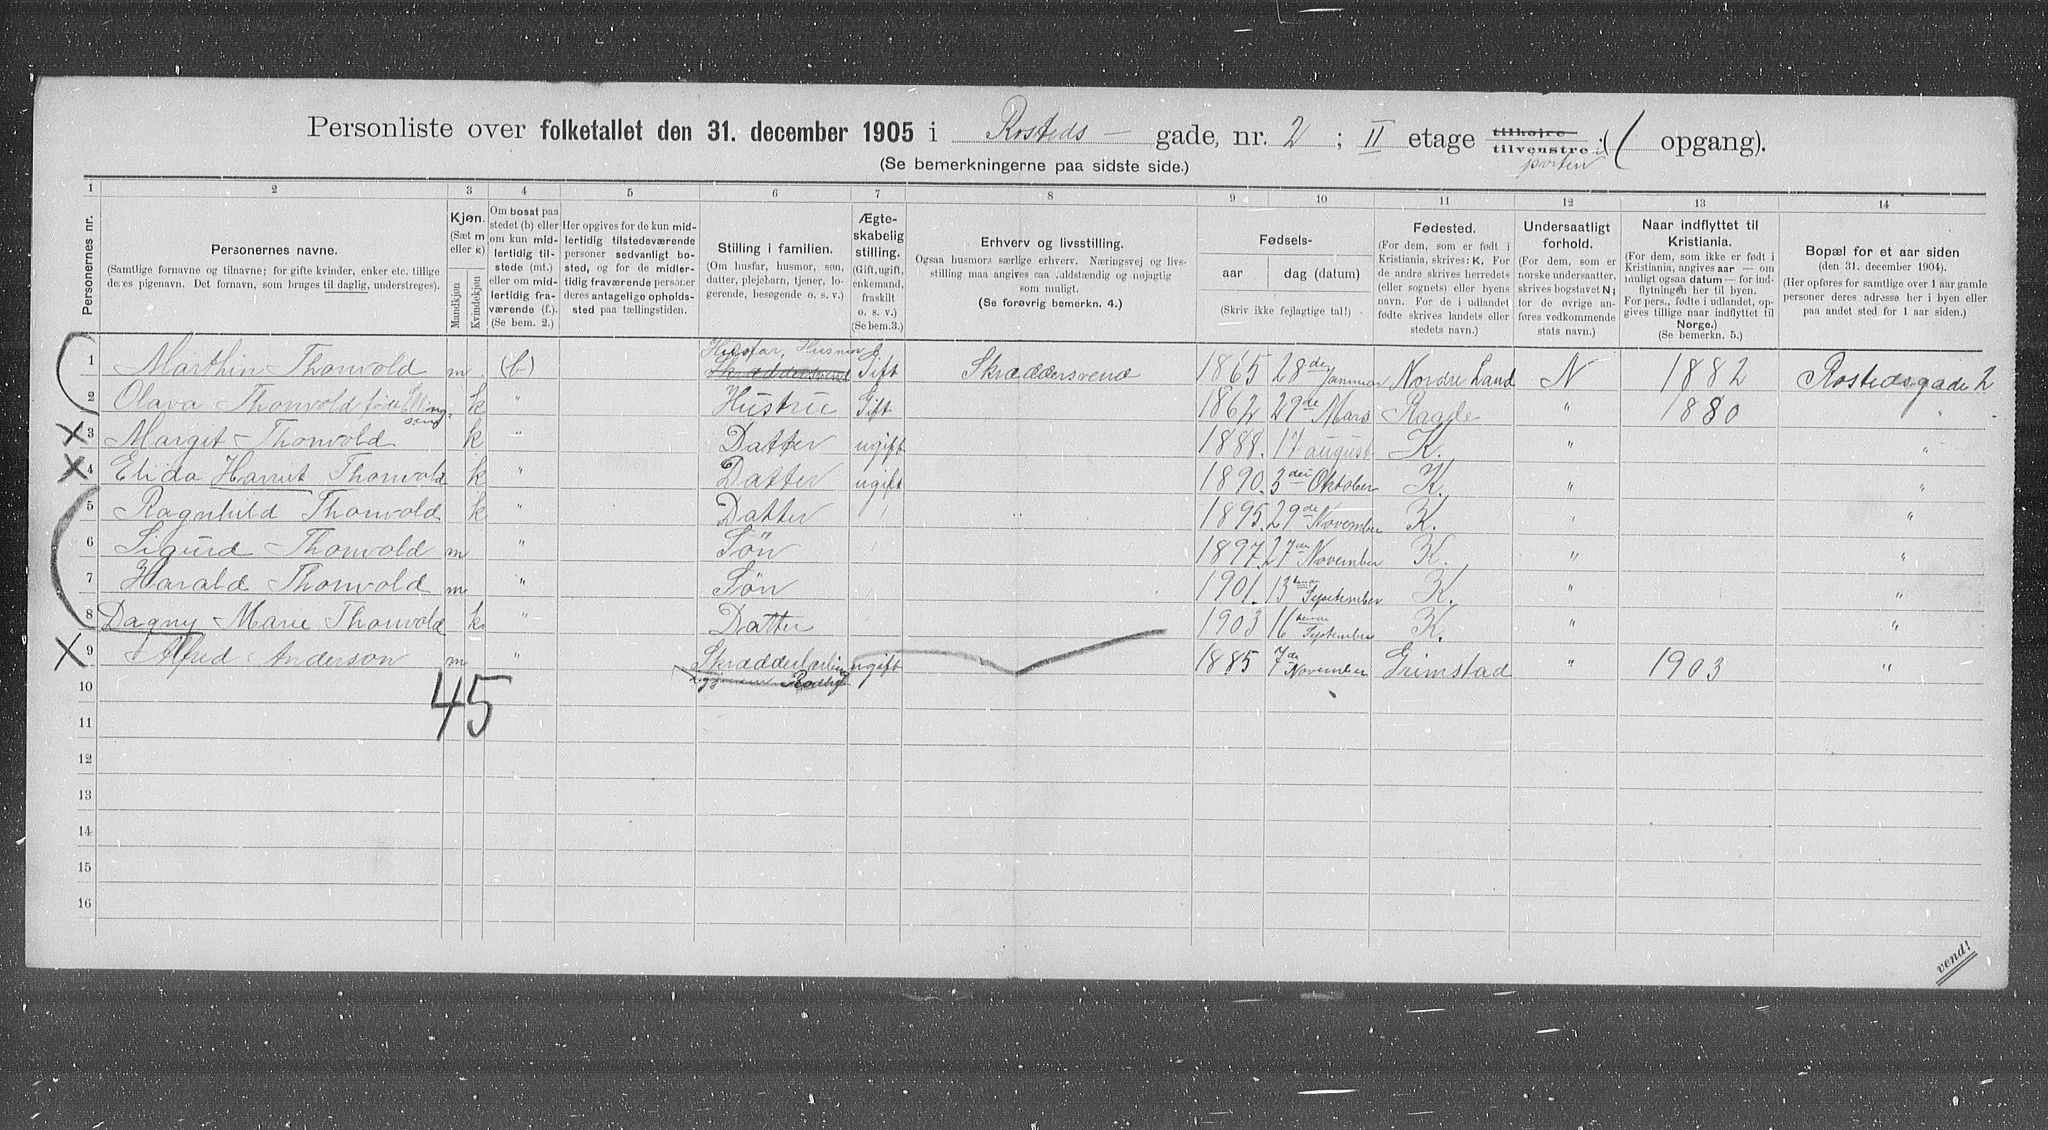 Personliste over folketallet den 31. december 1905 i Rosteds — gade, nr. 2 ; II etage tilhøjre tilvenstre ; ( opgang).
porten
(Se bemerkningerne paa sidste side.)
1 2 3 4 5 6 7 8 9 10 11 12 13 14
Personernes nr.
Personernes navne.
(Samtlige fornavne og tilnavne; for gifte kvinder, enker etc. tillige
deres pigenavn. Det fornavn, som bruges til daglig, understreges).
Kjøn.
(Sæt m
eller k)
Mandkjøn
Kvindekjøn
Om bosat paa
stedet (b) eller
om kun mid-
lertidig til-
stede (mt.)
eller om mid-
lertidig fra-
værende (f.).
(Se bem. 2.)
Her opgives for de kun mid-
lertidig tilstedeværende
personer sedvanlig bo-
sted, og for de midler-
tidig fraværende personer
deres antagelige opholds-
sted paa tællingstiden.
Stilling i familien.
(Om husfar, husmor, søn,
datter, plejebarn, tjener, lo-
gerende, besøgende o. s. v.)
Ægte-
skabelig
stilling.
(Gift, ugift,
enkemand,
fraskilt
o. s. v.)
(Se bem.3.)
Erhverv og livsstilling.
Ogsaa husmors særlige erhverv. Næringsvej og livs-
stilling maa angives saa fuldstændig og nøjagtig
som muligt.
(Se forøvrig bemerkn. 4.)
Fødsels-
aar dag (datum)
(Skriv ikke fejlagtige tal!)
Fødested.
(For dem, som er født i
Kristiania, skrives: K. For
de andre skrives herredets
(eller sognets) eller byens
navn. For de i udlandet
fødte skrives landets eller
stedets navn.)
Undersaatligt
forhold.
(For dem, som er
norske undersaatter,
skrives bogstavet N;
for de øvrige an-
føres vedkommende
stats navn.)
Naar indflyttet til
Kristiania.
(For dem, som ikke er født i
Kristiania, angives aar — om
muligt ogsaa datum — for ind-
flytningen her til byen.
For pers., fødte i udlandet, op-
gives tillige naar indflyttet til
Norge.)
(Se bemerkn. 5.)
Bopæl for et aar siden
(den 31. december 1904).
(Her opføres for samtlige over 1 aar gamle
personer deres adresse her i byen eller
paa andet sted for 1 aar siden.)
Husfar, Husmor
1 Marthin Thorvold m (b) Skræddersvend Gift Skræddersvend 1865 28de Januar Nordre Land N 1882 Rostedsgade 2
2 Olava Thorvold født Elling- k " Hustru Gift 1862 29de Mars Raade " 1880 "
sen
3 Marget Thorvold k " Datter ugift 1888. 17 august K. " "
4 Elida Harriet Thorvold k " Datter ugift 1890. 3die Oktober K. " "
5 Ragnhild Thorvold k " Datter 1895. 29de November K. " "
6 Sigurd Thorvold m " Søn 1897. 27de November K. " "
7 Harald Thorvold m " Søn 1901. 13tende September K. " "
8 Dagny Marie Thorvold k " Datter 1903 16tende September K. " "
9 Alfred Anderson m " Skrædderlærling ugift 1885 7de November Grimstad " 1903 "
10
45
11
12
13
14
15
16
vend!